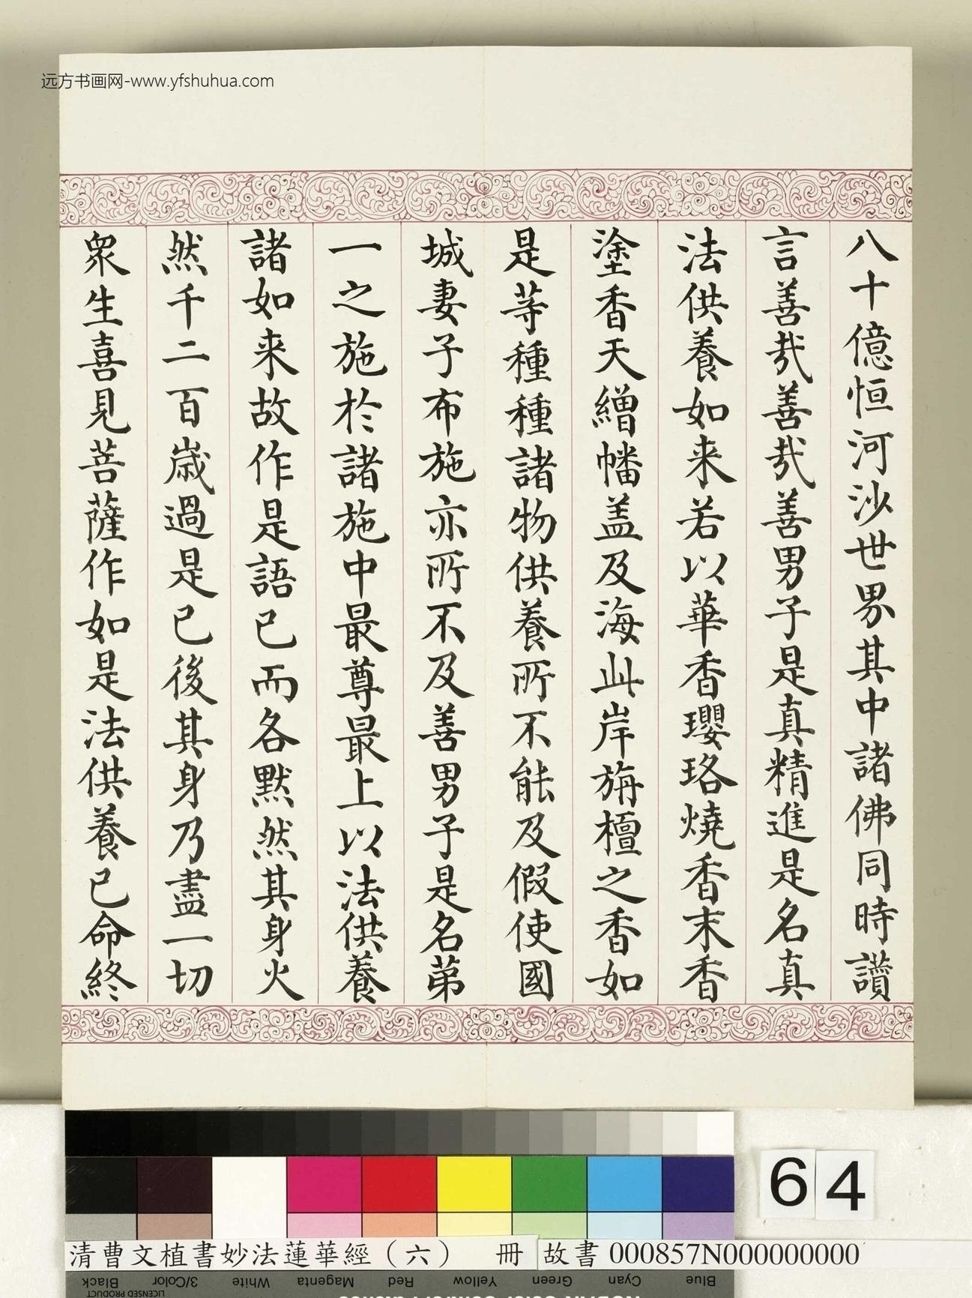 远方书画网-www.yfshuhua.com
八十億恒河沙世界其中諸佛同時讚
言善哉善哉善男子是真精進是名真
法供養如来若以華香瓔珞燒香末香
塗香天繒幡盖及海此岸旃檀之香如
是等種種諸物供養所不能及假使國
城妻子布施亦所不及善男子是名第
一之施於諸施中最尊最上以法供養
諸如来故作是語已而各默然其身火
然千二百歲過是已後其身乃盡一切
衆生喜見菩薩作如是法供養已命終
64
清曹文植書妙法蓮華經（六） 冊 故書 000857N000000000
Black 3/Color White Magenta Red Yellow Green Cyan Blue
LICENSED PRODUCT